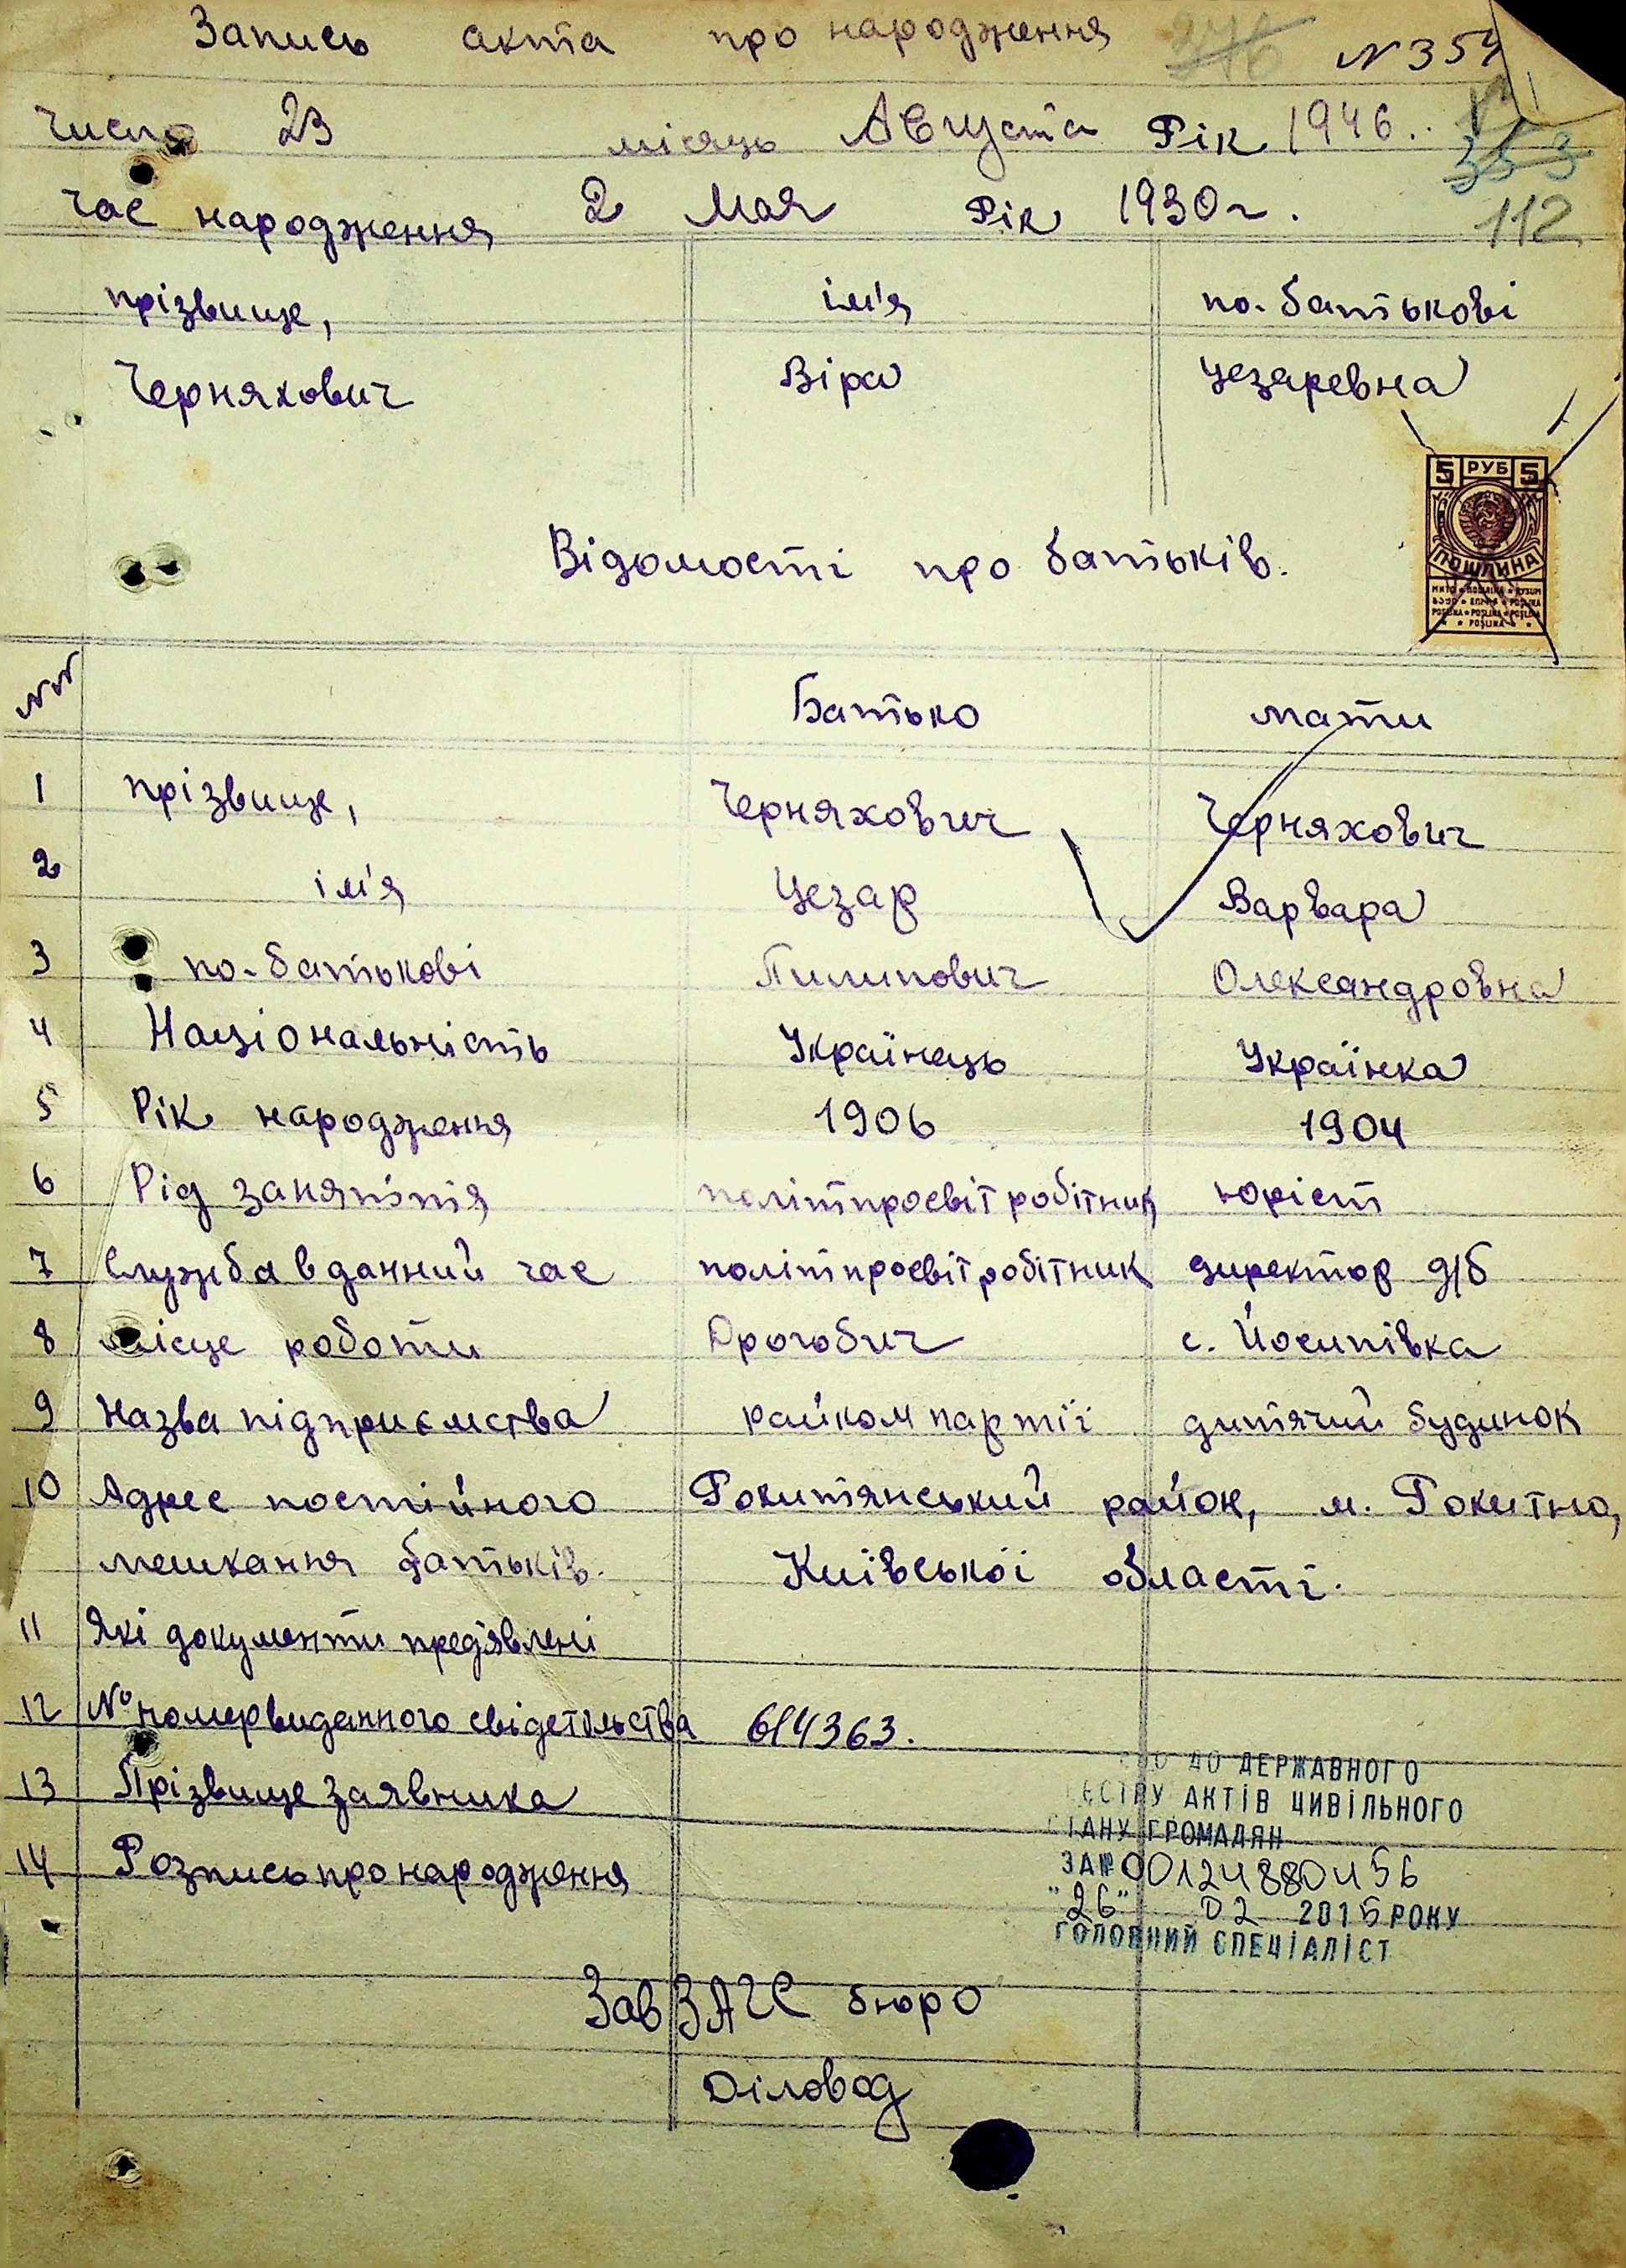 Запись акта про народження 276 N 354
Число 23 місяць Августа Рік 1946..
353
Час народження 2 Мая Рік 1930 г.
112
прізвище, ім'я по-батькові
Черняхович Віра Цезаревна
5 РУБ 5
ПОШЛИНА
Відомості про батьків.
NN Батько мати
1 прізвище, Черняхович Черняхович
2 ім'я Цезар Варвара
3 по-батькові Пилипович Олександровна
4 Національність Українець Українка
5 Рік народження 1906 1904
6 Рід заняття політпросвіт робітник юріст
7 Служба в данний час політпросвіт робітник директор д/б
8 місце роботи Дрогобич с. Йосипівка
9 Назва підприємства райком партії дитячий будинок
10 Адрес постійного Рокитянський район, м. Рокитно,
мешкання батьків. Київської області.
11 Які документи пред'явлені
12 № номер виданного свідетельства 614363.
ДО ДЕРЖАВНОГО
13 Прізвище заявника
ЄСТРУ АКТІВ ЦИВІЛЬНОГО
СТАНУ ГРОМАДЯН
14 Розпись про народження
ЗА № 00124880456
"26" 02 2015 РОКУ
ГОЛОВНИЙ СПЕЦІАЛІСТ
Зав ЗАГС бюро
Діловод